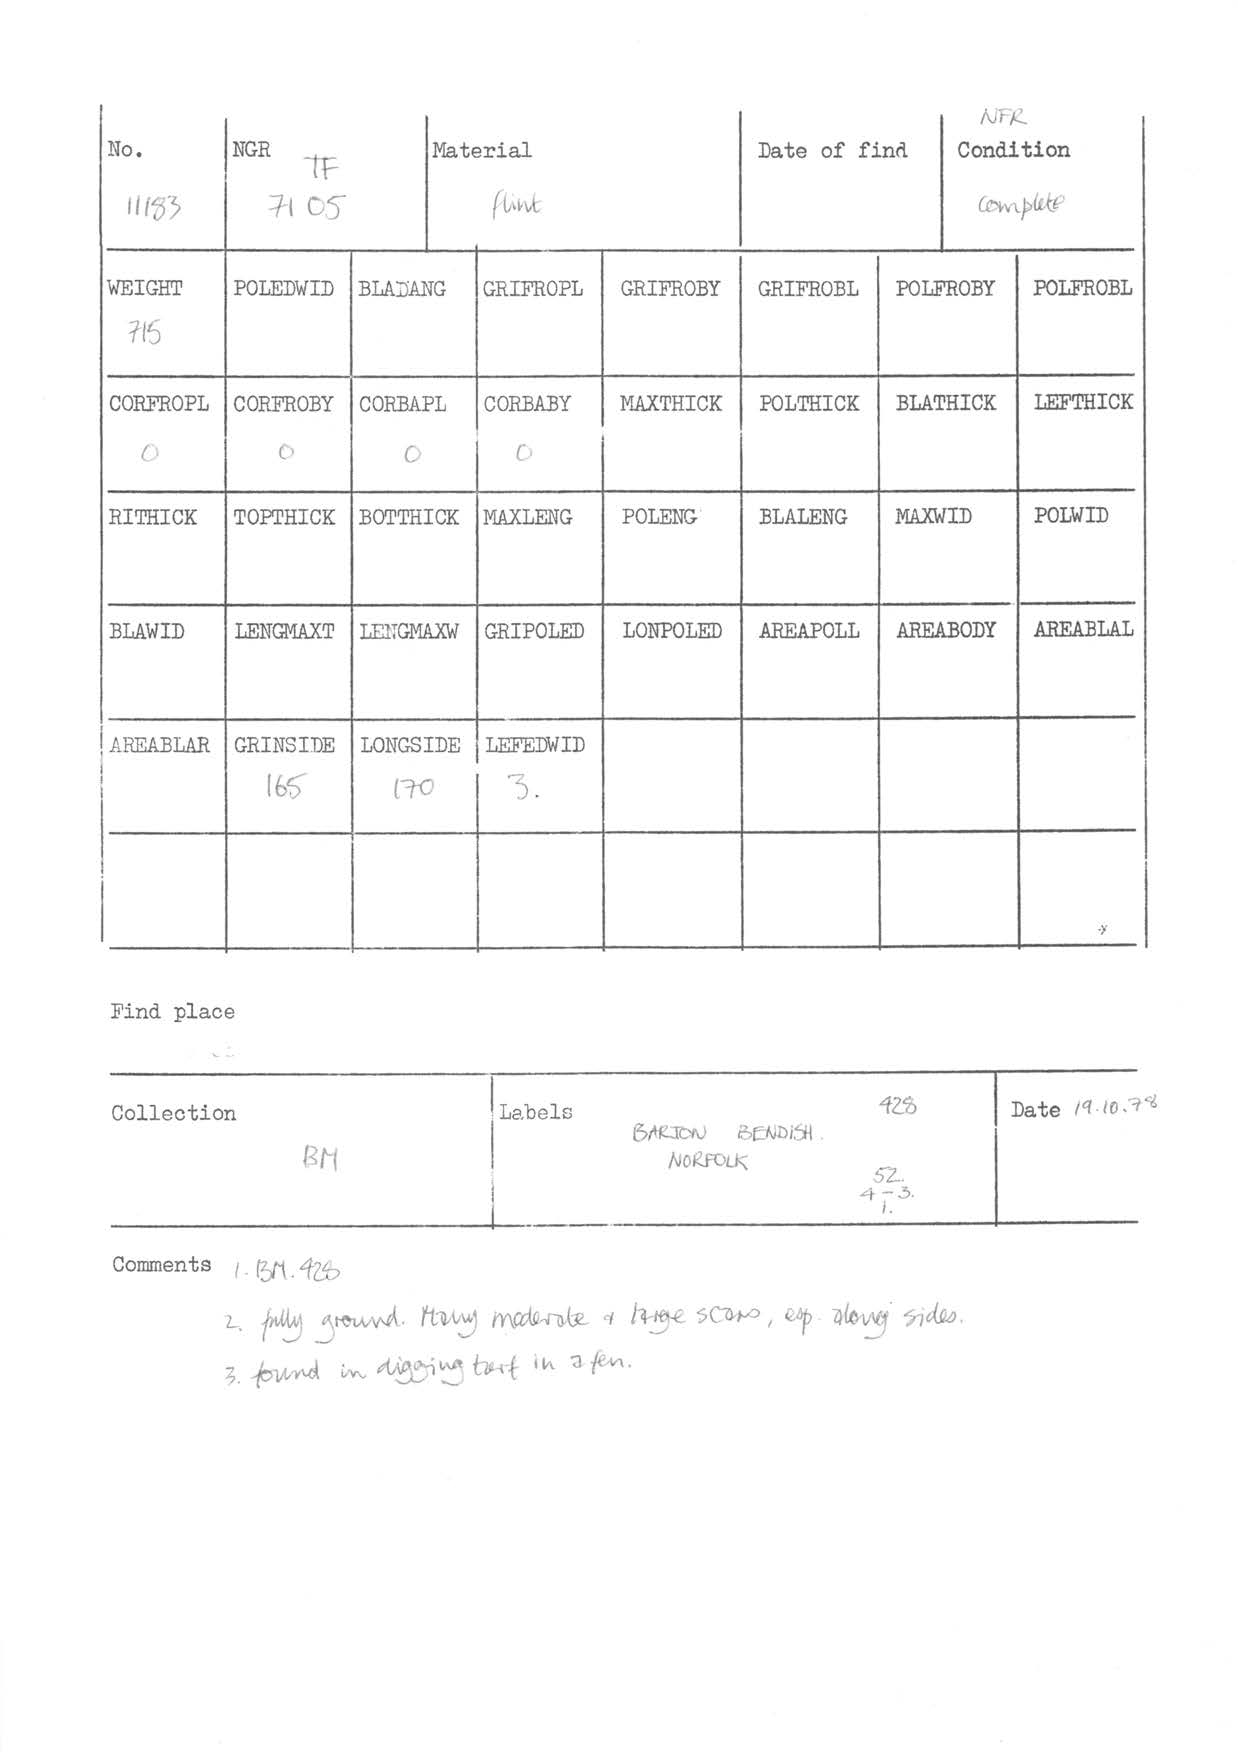 NFR
No. NGR Material Date of find Condition
TF
11183 71 05 flint complete
WEIGHT POLEDWID BLADANG GRIFROPL GRIFROBY GRIFROBL POLFROBY POLFROBL
715
CORFROPL CORFROBY CORBAPL CORBABY MAXTHICK POLTHICK BLATHICK LEFTHICK
0 0 0 0
RITHICK TOPTHICK BOTTHICK MAXLENG POLENG BLALENG MAXWID POLWID
BLAWID LENGMAXT LENGMAXW GRIPOLED LONPOLED AREAPOLL AREABODY AREABLAL
AREABLAR GRINSIDE LONGSIDE LEFEDWID
165 170 3.
Find place
Collection Labels 428 Date 19.10.78
BARTON BENDISH.
BM NORFOLK
52.
4-3.
1.
Comments 1. BM. 428
2. fully ground. Many moderate & large scars, esp. along sides.
3. found in digging turf in a fen.